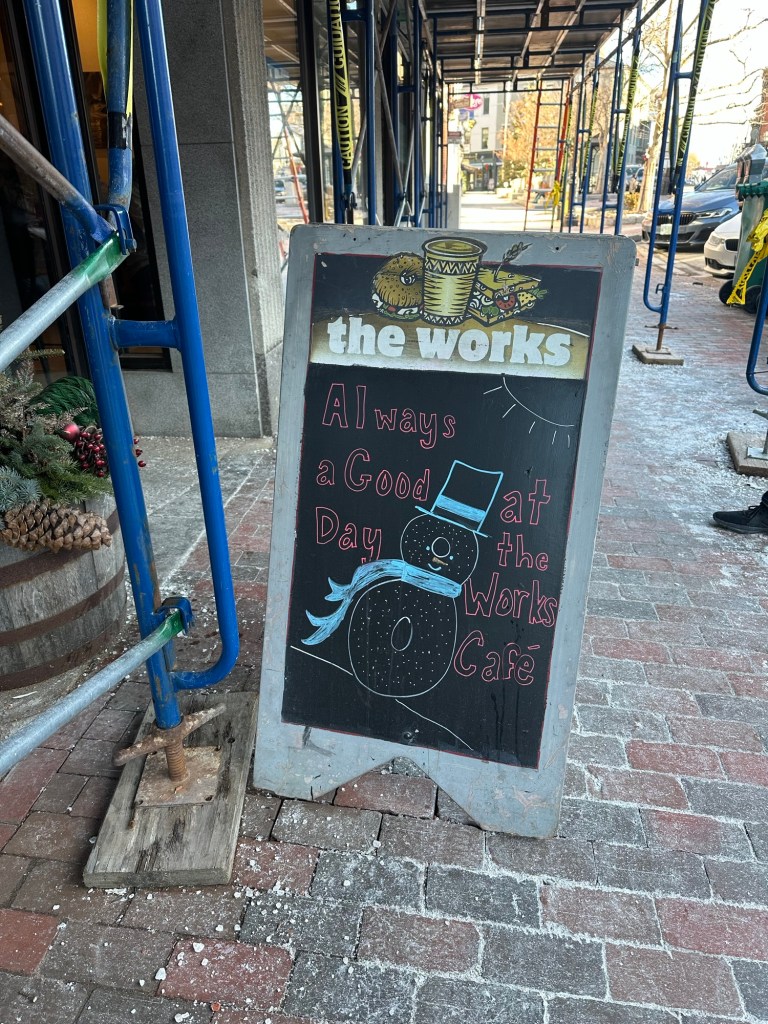 CAUTION
the works
Always
a Good at
Day the
Works
Café